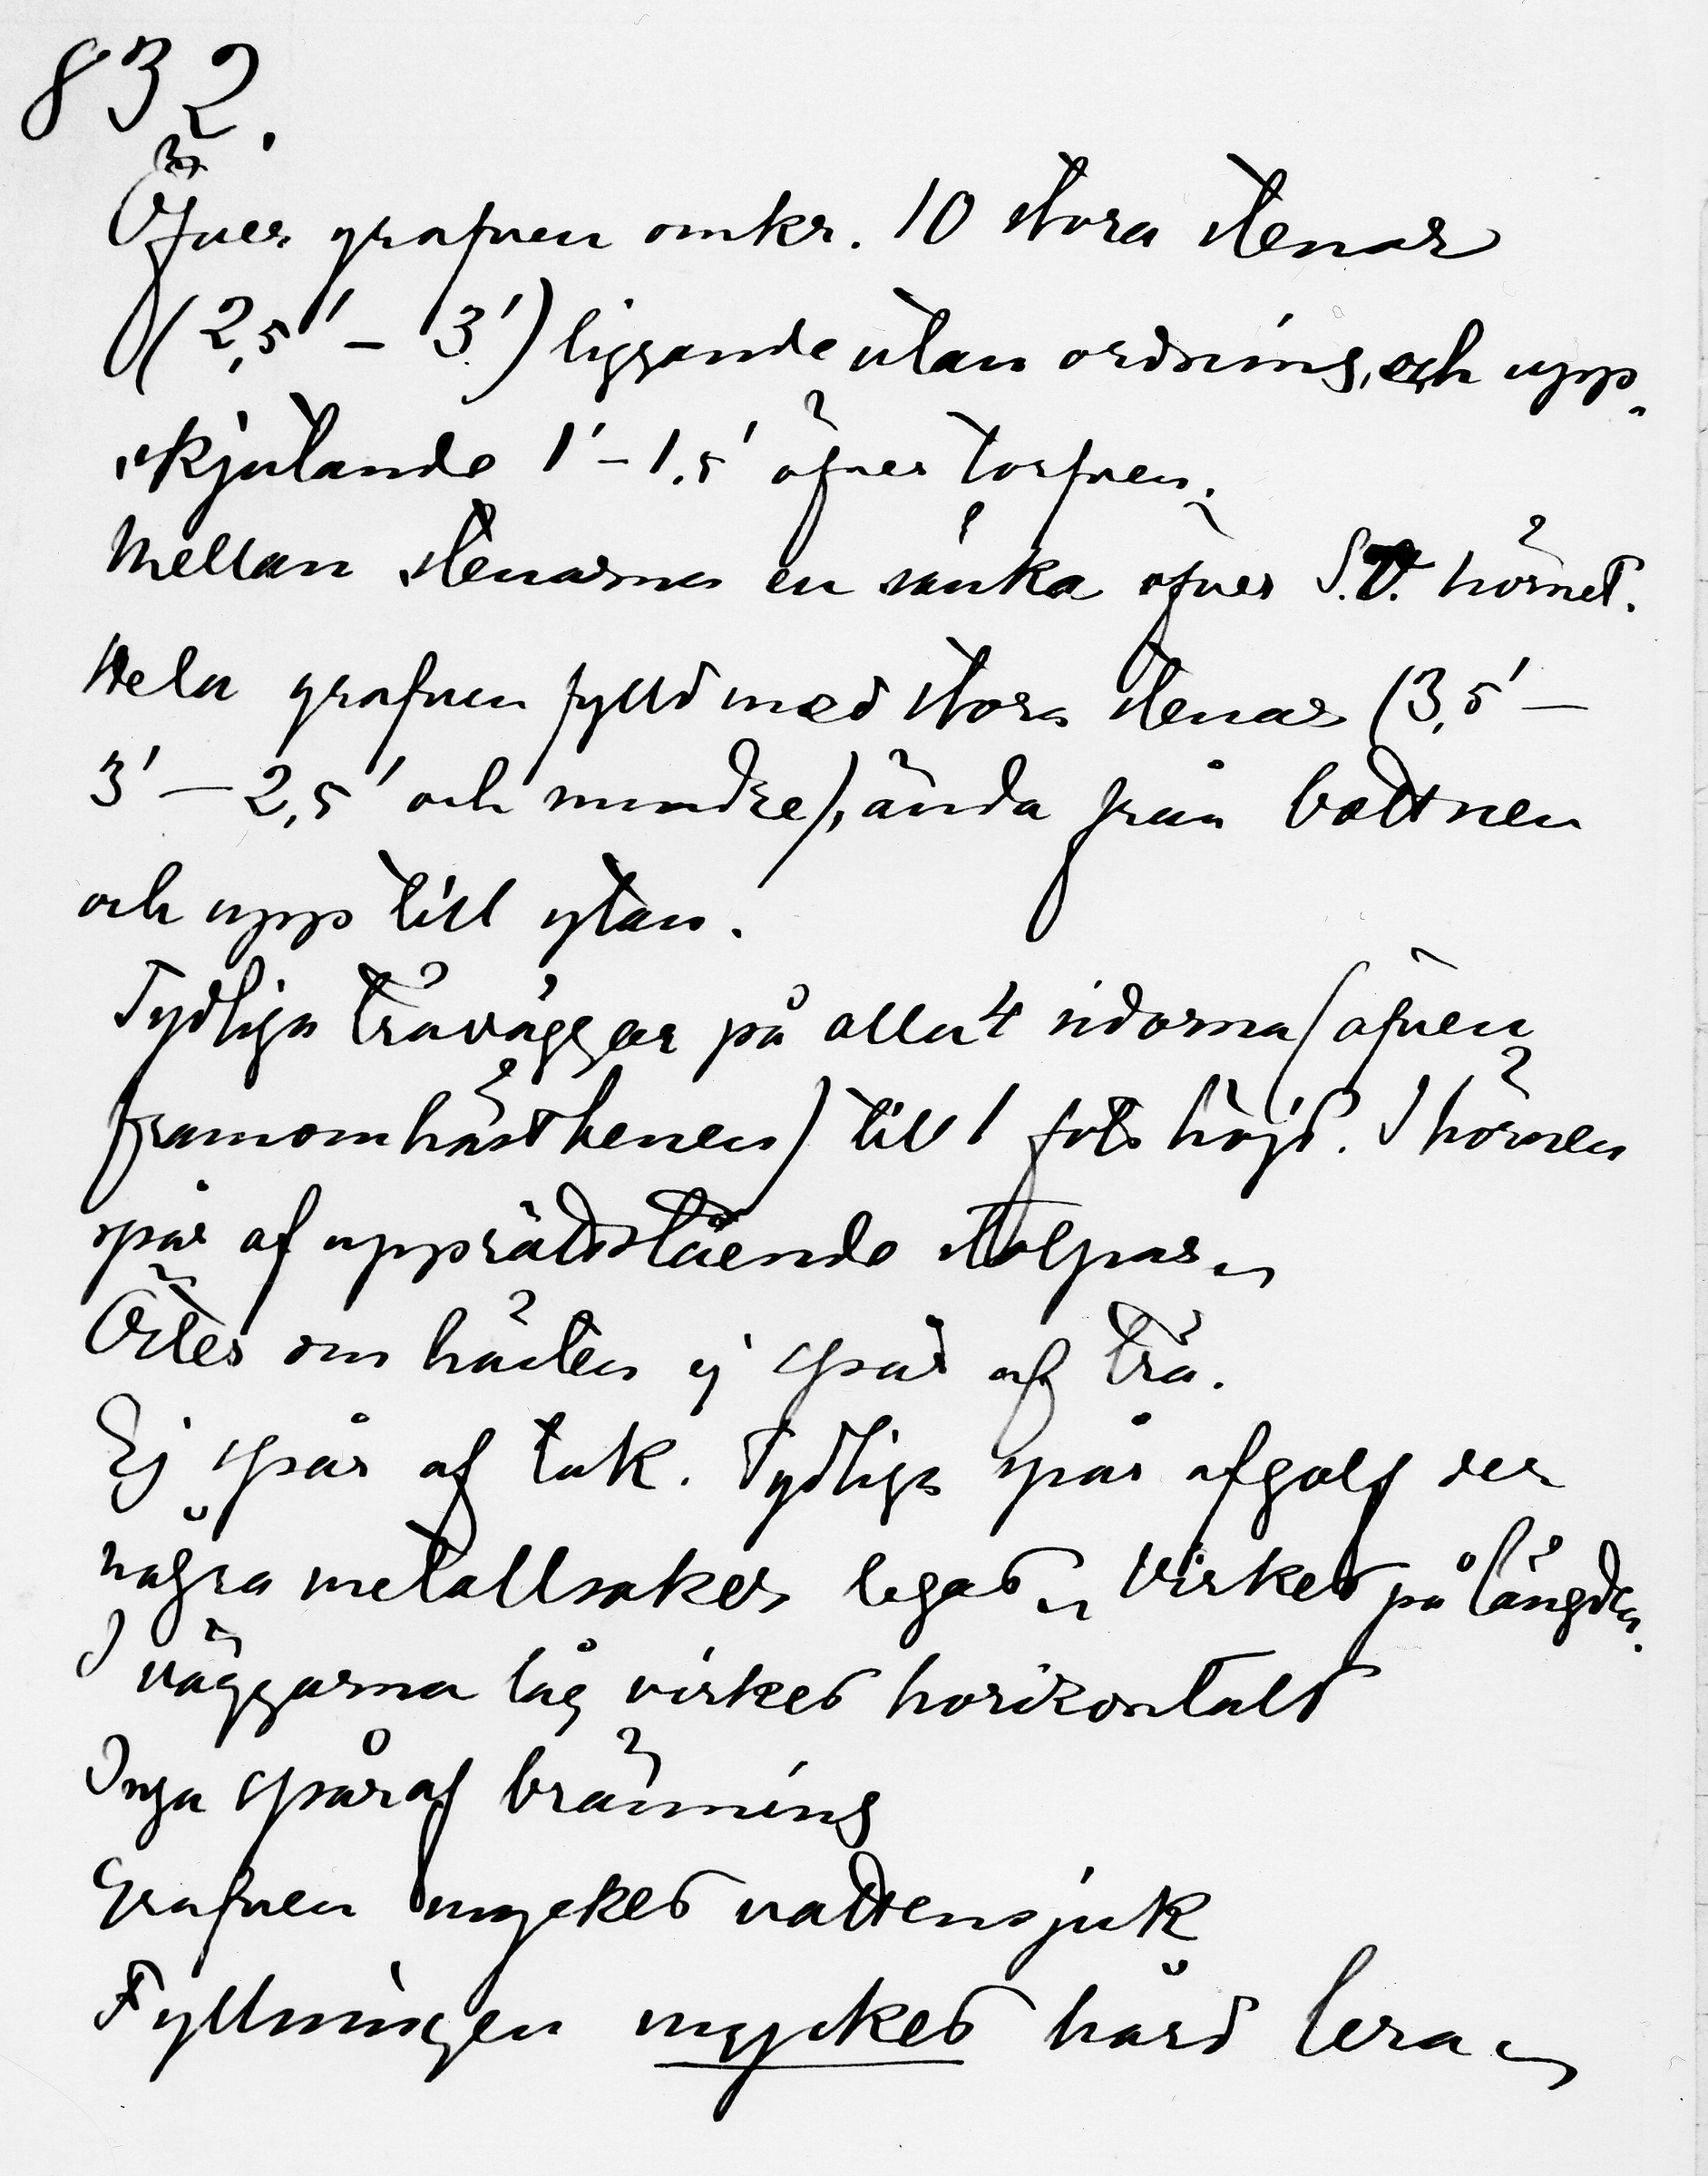 832.
Öfver grafven omkr. 10 stora stenar
(2,5' – 3') liggande utan ordning, och upp-
skjutande 1' – 1,5' öfver torfven.
Mellan stenarna en sänka öfver S.V. hörnet.
Hela grafven fylld med stora stenar (3,5' –
3' – 2,5' och mindre), ända från bottnen
och upp till ytan.
Tydliga träväggar på alla 4 sidorna (äfven
framom hästbenen) till 1 fots höjd. I hörnen
spår af upprättstående stolpar.
Öster om hästen ej spår af trä.
Ej spår af tak. Tydliga spår af golf der
några metallsaker legat. Virket på längden.
I väggarna låg virket horizontalt
Inga spår af bränning
Grafven mycket vattensjuk
Fyllningen mycket hård lera